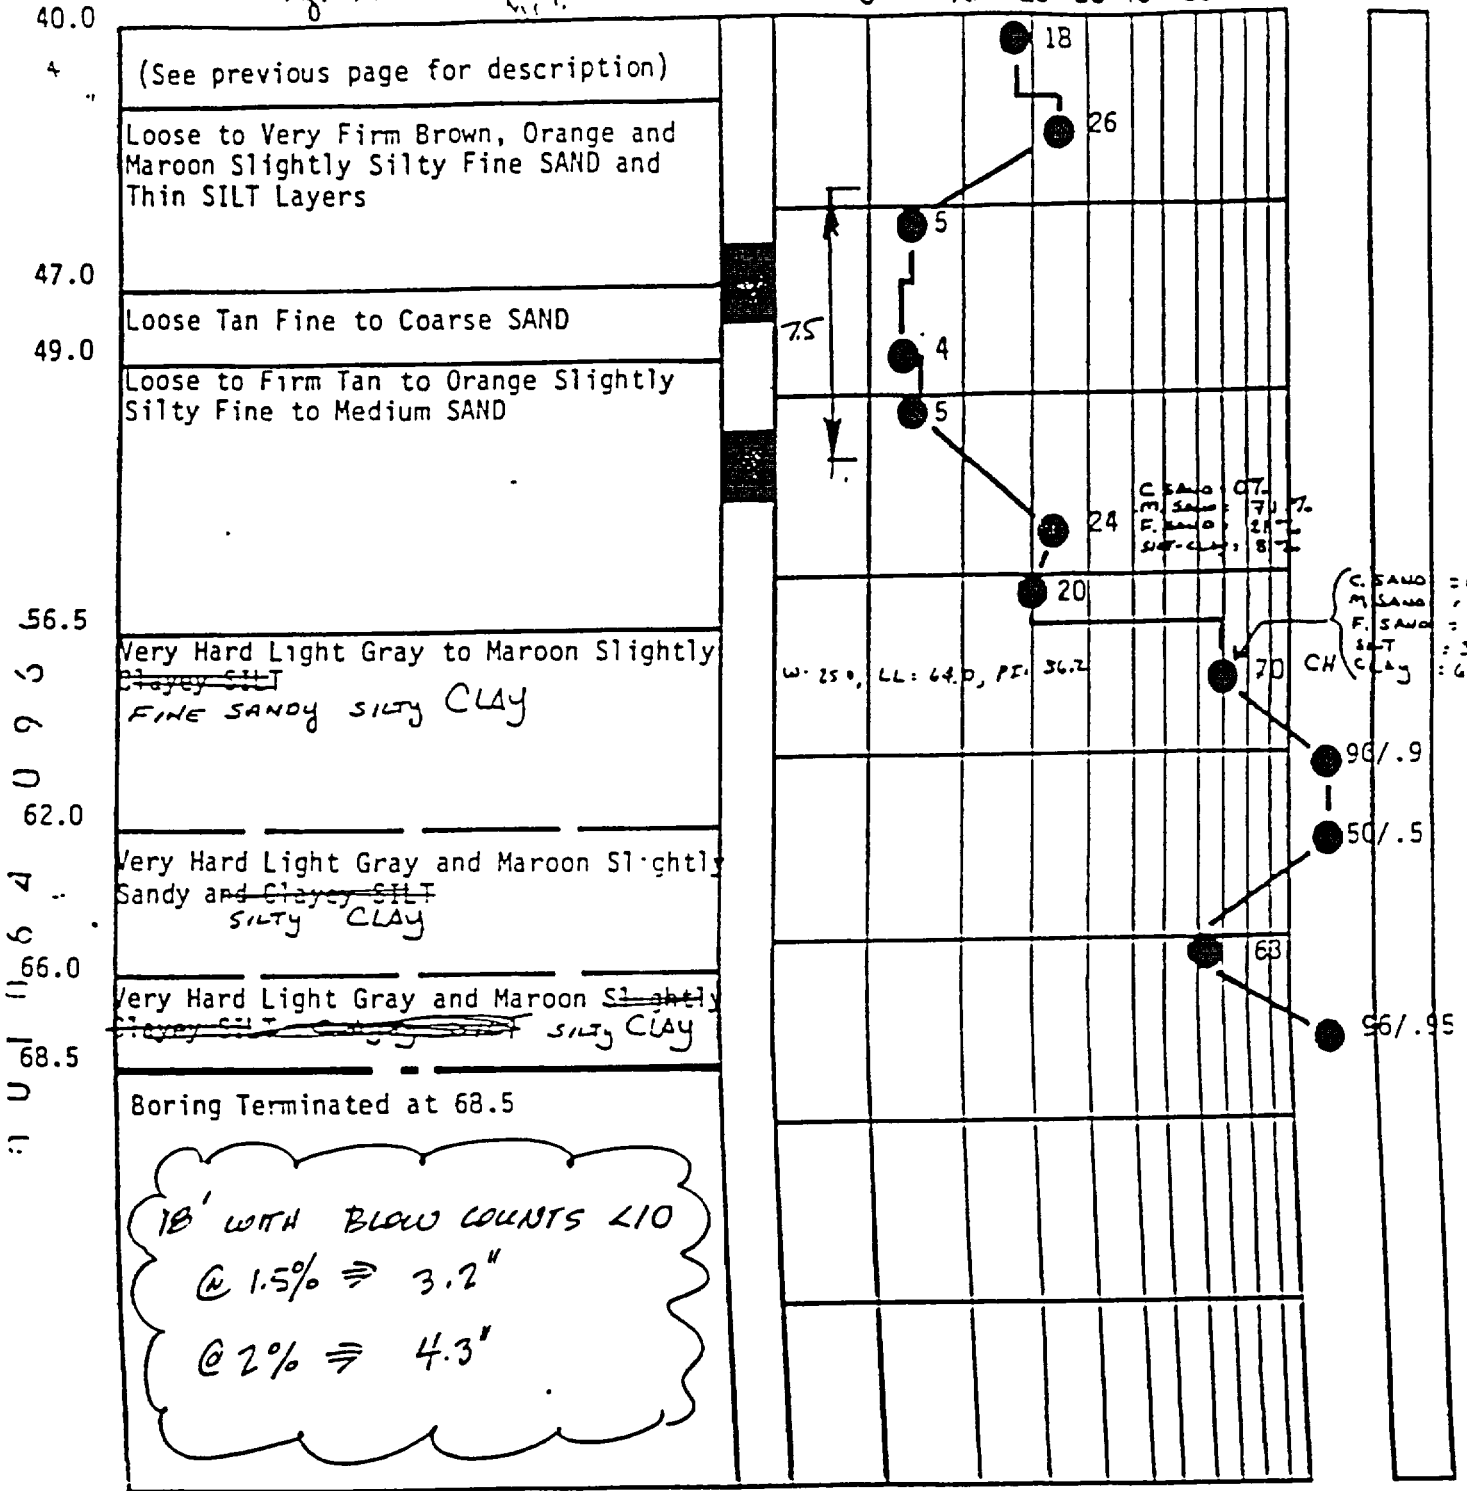 40.0
(See previous page for description)
Loose to Very Firm Brown, Orange and
Maroon Slightly Silty Fine SAND and
Thin SILT Layers
47.0
Loose Tan Fine to Coarse SAND
49.0
Loose to Firm Tan to Orange Slightly
Silty Fine to Medium SAND
56.5
Very Hard Light Gray to Maroon Slightly
Clayey SILT
FINE SANDY SILTY CLAY
62.0
Very Hard Light Gray and Maroon Slightly
Sandy and Clayey SILT
SILTY CLAY
66.0
Very Hard Light Gray and Maroon Slightly
Clayey SILT SILTY CLAY
68.5
Boring Terminated at 68.5
18' WITH BLOW COUNTS <10
@ 1.5% ⇒ 3.2"
@ 2% ⇒ 4.3"
18
26
5
7.5
4
5
24
C SAND : 0%
M. SAND : 71%
F. SAND : 21%
SILT-CLAY : 8%
20
C. SAND =
M SAND
F. SAND =
SILT :
CLAY : 6
CH
W. 25.0, LL: 64.0, PI: 36.2
70
90/.9
50/.5
63
96/.95